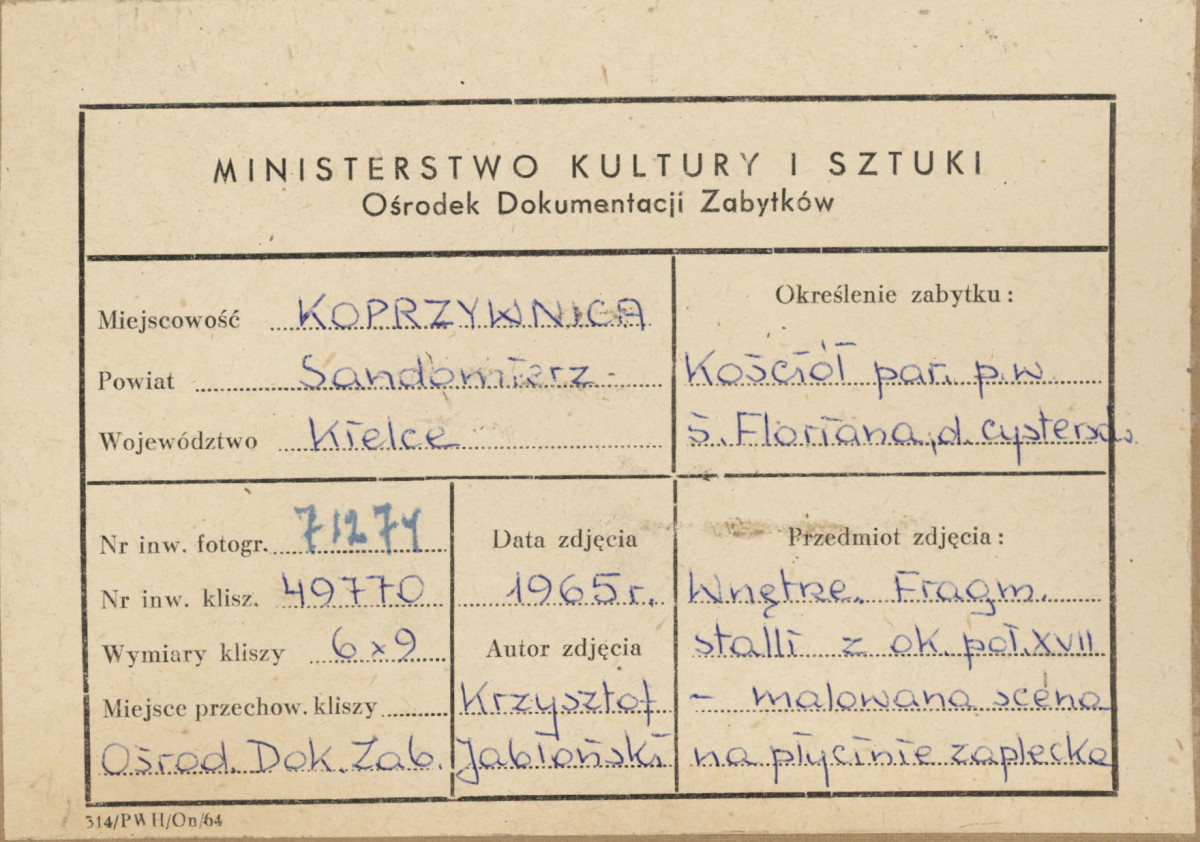 MINISTERSTWO KULTURY I SZTUKI
Ośrodek Dokumentacji Zabytków
Miejscowość KOPRZYWNICA
Powiat Sandomierz
Województwo Kielce
Określenie zabytku:
Kościół par. p.w
ś. Floriana, d. cystersów
Nr inw. fotogr. 71274
Nr inw. klisz. 49770
Wymiary kliszy 6x9
Miejsce przechow. kliszy
Ośrod. Dok. Zab.
Data zdjęcia
1965 r.
Autor zdjęcia
Krzysztof
Jabłoński
Przedmiot zdjęcia:
Wnętrze. Fragm.
stalli z ok. poł. XVII
- malowana scena
na płycinie zaplecka
314/PWH/On/64